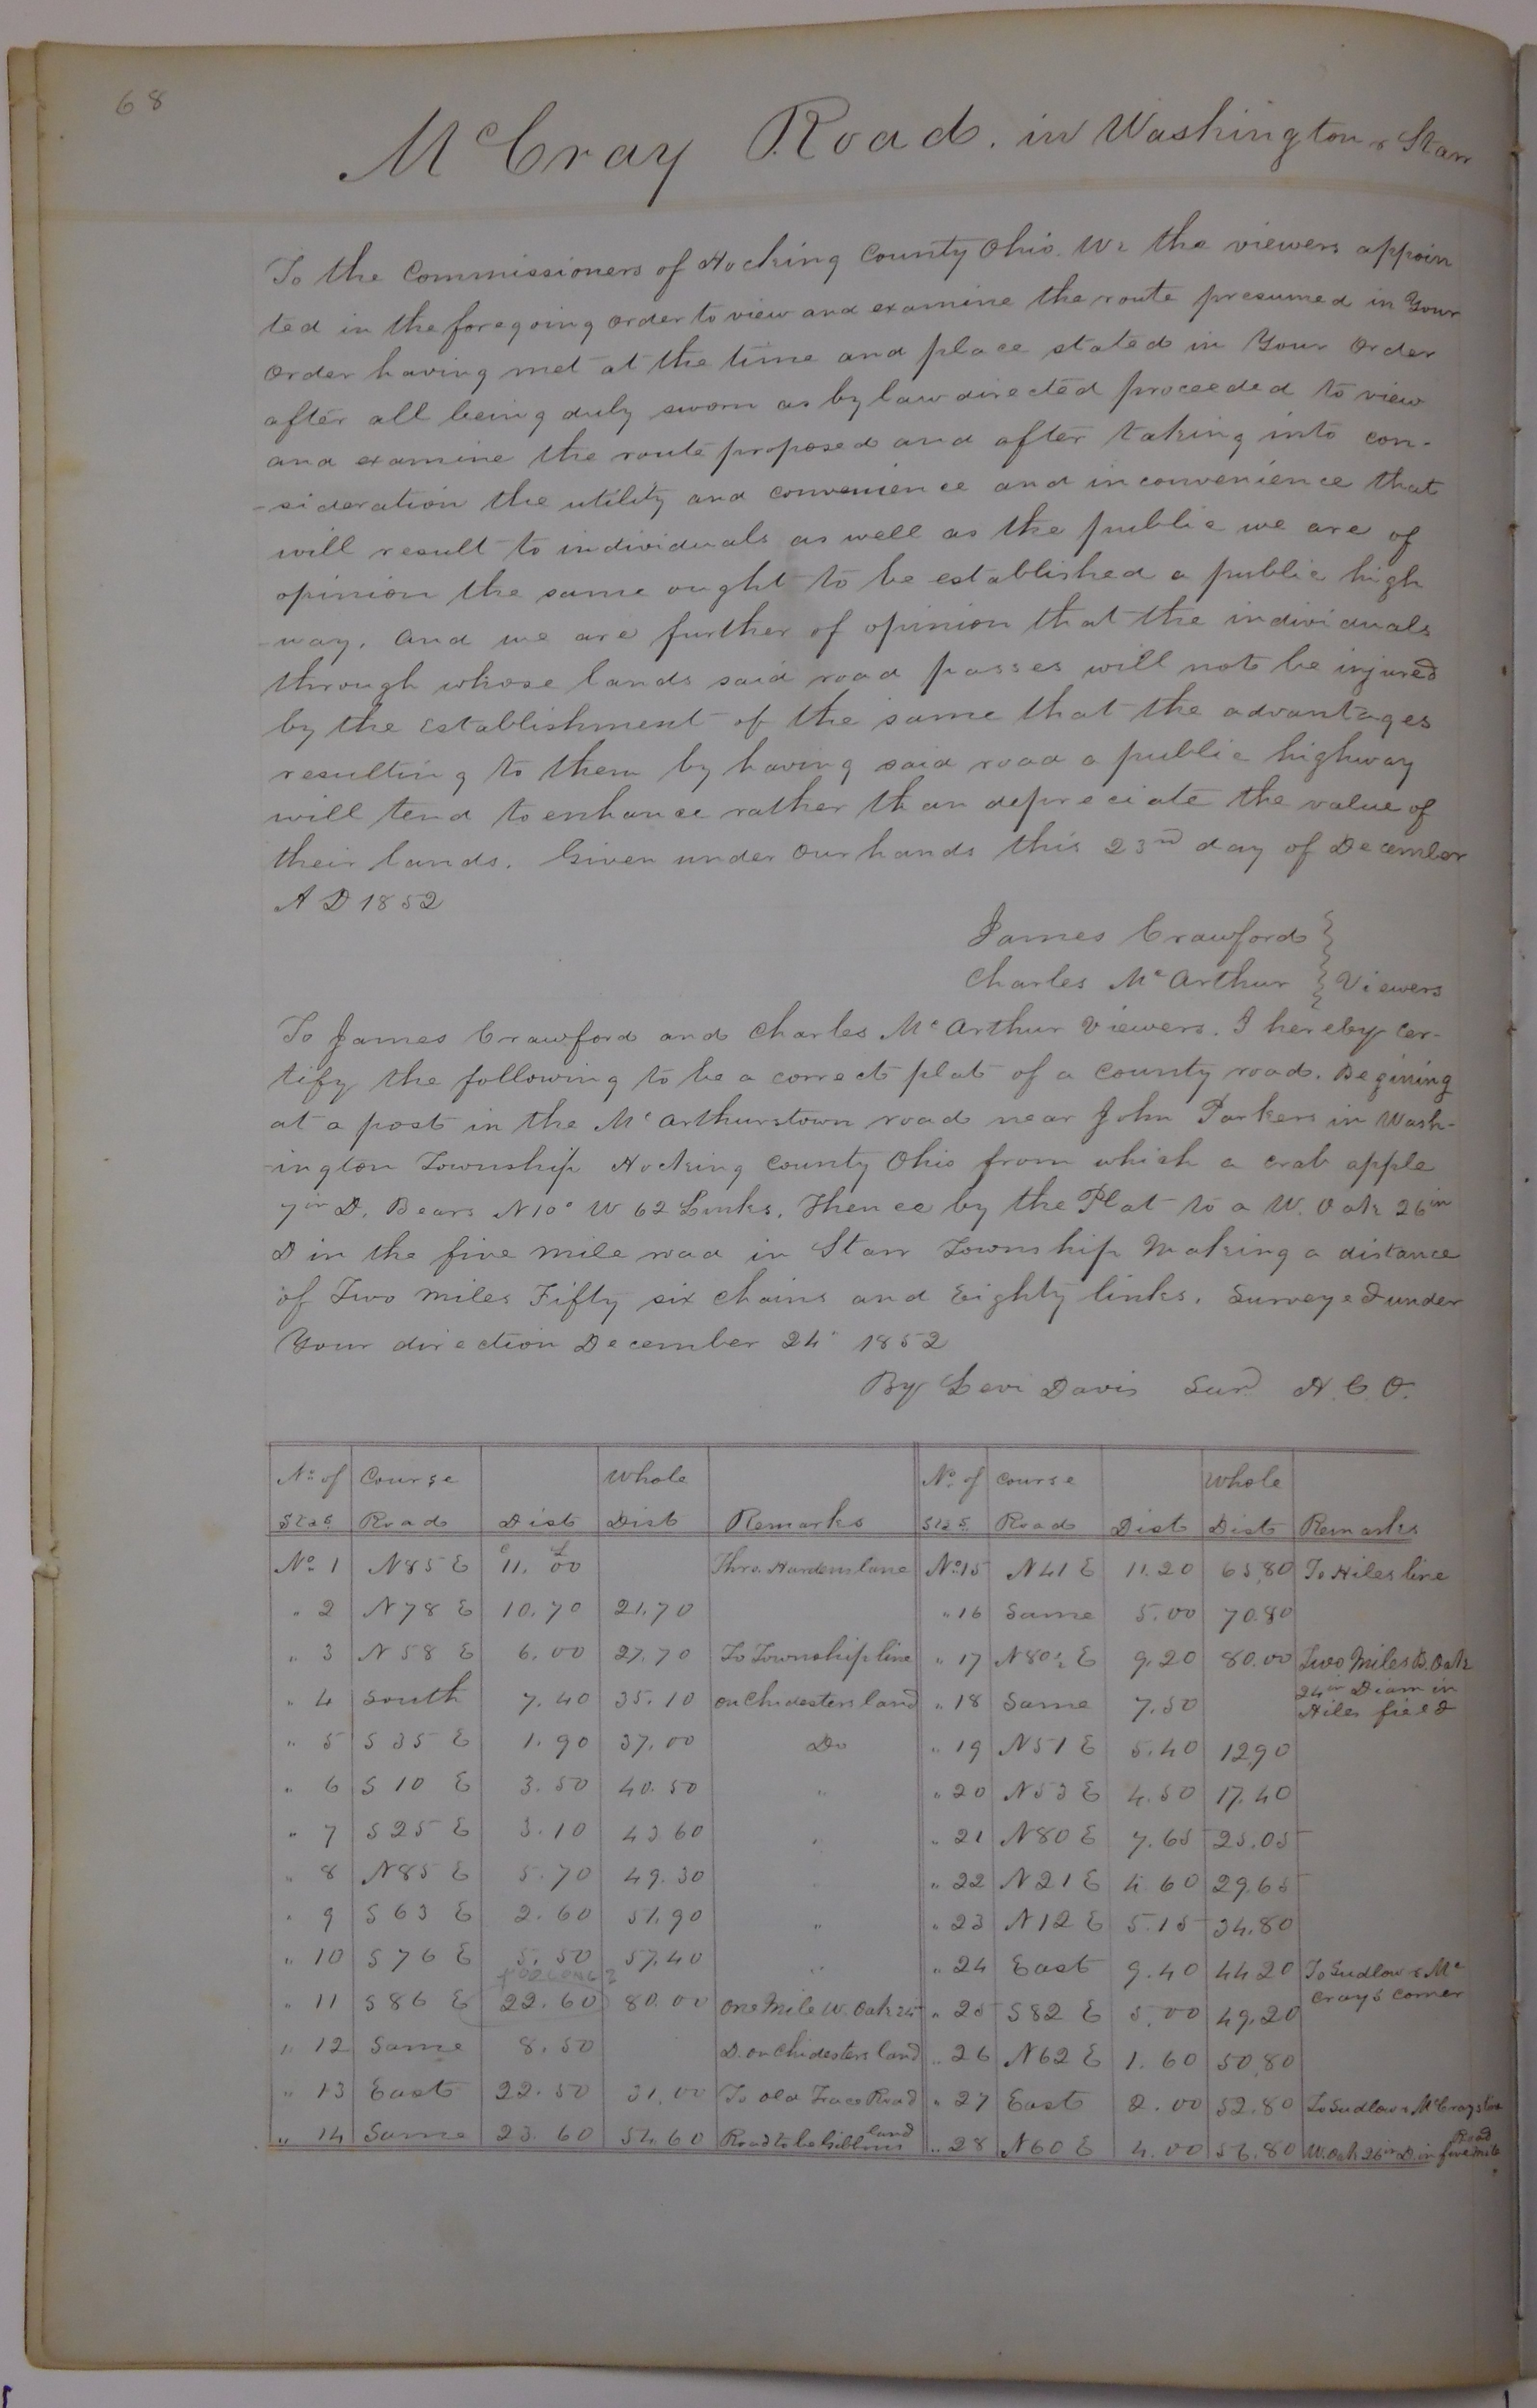 68
McCray Road. in Washington & Starr
To the Commissioners of Hocking County Ohio. We the viewers appoin
ted in the foregoing order to view and examine the route presumed in Your
order having met at the time and place stated in Your Order
after all being duly sworn as by law directed proceeded to view
and examine the route proposed and after taking into con-
-sideration the utility and convenience and inconvenience that
will result to individuals as well as the public we are of
opinion the same ought to be established a public high
-way. and we are further of opinion that the individuals
through whose lands said road passes will not be injured
by the establishment of the same that the advantages
resulting to them by having said road a public highway
will tend to enhance rather than depreciate the value of
their lands. Given under our hands this 23rd day of December
A D 1852
James Crawford }
Charles McArthur } Viewers
To James Crawford and Charles McArthur Viewers. I hereby cer-
tify the following to be a correct plat of a county road. Begining
at a post in the McArthurstown road near John Parkers in Wash-
-ington Township Hocking County Ohio from which a crab apple
7in D. Bears N10° W 62 Links. Thence by the Plat to a W. Oak 26in
D in the five mile road in Starr Township Making a distance
of Two miles Fifty six chains and Eighty links. Surveyed under
Your direction December 24" 1852
By Levi Davis Surr H. C. O.
No. of Course Whole No. of Course Whole
Stas Road Dist Dist Remarks Stas Road Dist Dist Remarks
No. 1 N85 E 11.00 Thro. Hardens lane No. 15 N41 E 11.20 65.80 To Hiles line
" 2 N78 E 10.70 21.70 " 16 Same 5.00 70.80
" 3 N58 E 6.00 27.70 To Township line " 17 N80½ E 9.20 80.00 Two Miles B. Oak
" 4 South 7.40 35.10 on Chidesters land " 18 Same 7.50 24in Diam in
Hiles field
" 5 S35 E 1.90 37.00 Do " 19 N51 E 5.40 12.90
" 6 S10 E 3.50 40.50 " " 20 N53 E 4.50 17.40
" 7 S25 E 3.10 43.60 " " 21 N80 E 7.65 25.05
" 8 N85 E 5.70 49.30 " " 22 N21 E 4.60 29.65
" 9 S63 E 2.60 51.90 " " 23 N12 E 5.15 34.80
" 10 S76 E 5.50 57.40 " " 24 East 9.40 44.20 To Sudlow & Mc
" 11 S86 E 22.60 80.00 One Mile W. Oak 24 " 25 S82 E 5.00 49.20 Crays corner
" 12 Same 8.50 D. on Chidesters land " 26 N62 E 1.60 50.80
" 13 East 22.50 31.00 To old Trace Road " 27 East 2.00 52.80 To Sudlow & McCrays line
" 14 Same 23.60 54.60 Road to be land " 28 N60 E 4.00 56.80 W. Oak 26in D. in five mile Road